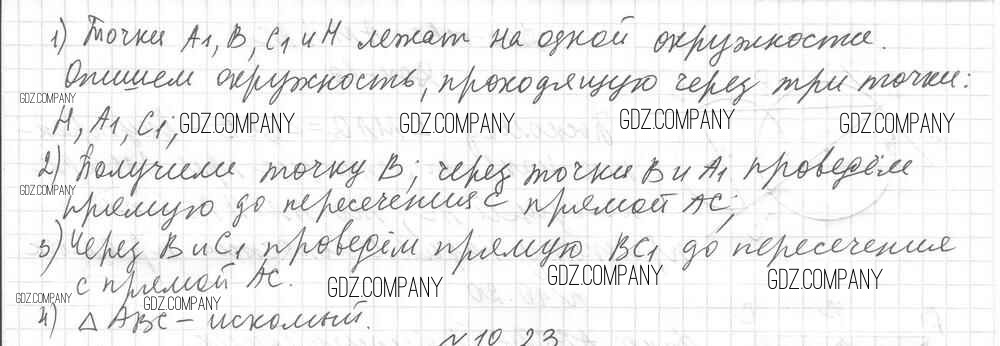 1) Точки A1, B, C1 и H лежат на одной окружности.
Опишем окружность, проходящую через три точки:
GDZ.COMPANY
H, A1, C1; GDZ.COMPANY GDZ.COMPANY GDZ.COMPANY GDZ.COMPANY
2) Получили точку B; через точки B и A1 проведём
GDZ.COMPANY
прямую до пересечения с прямой AC;
3) Через B и C1 проведём прямую BC1 до пересечения
с прямой AC. GDZ.COMPANY GDZ.COMPANY GDZ.COMPANY
GDZ.COMPANY GDZ.COMPANY
4) △ ABC – искомый.
№10.23